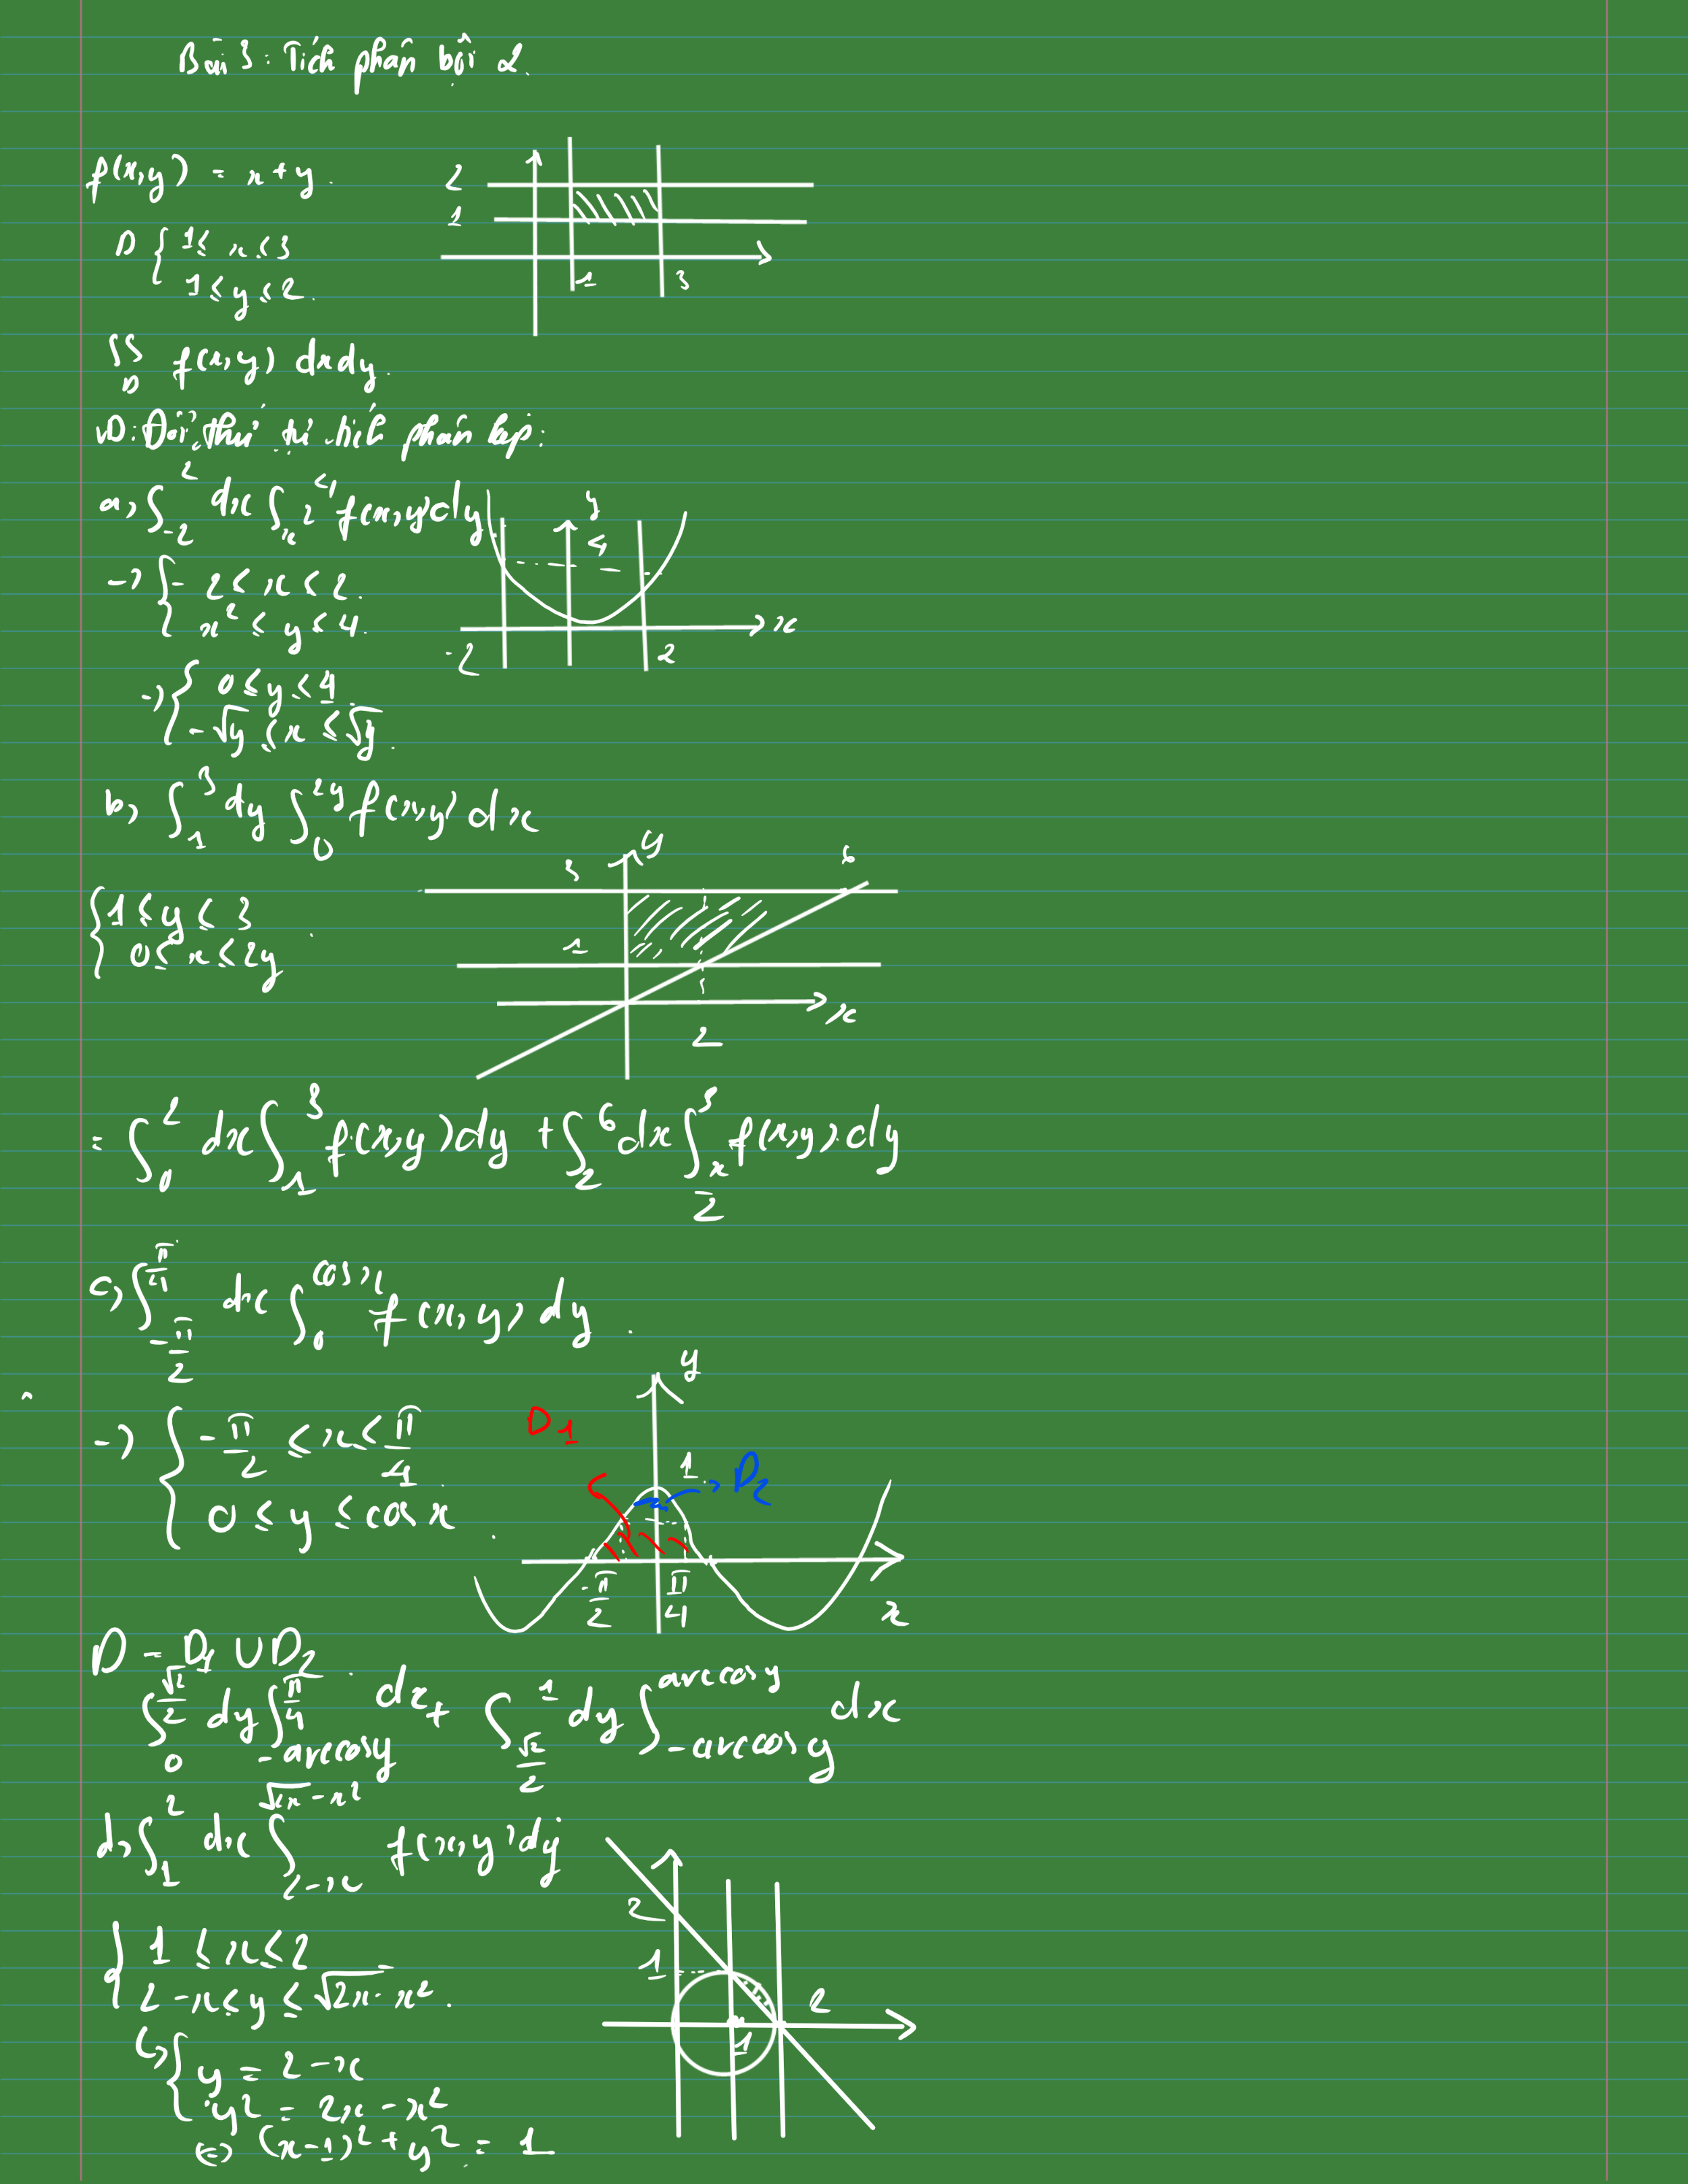 Bài 3: Tích phân bội 2.
f(x,y) = x+y.
2
1
D { 1 ≤ x ≤ 3
1 ≤ y ≤ 2.
1 3
∬_D f(x,y) dxdy.
VD: Đổi thứ tự tích phân lặp:
a, ∫_{-2}^{2} dx ∫_{x^2}^{4} f(x,y)dy
y
4
-> { -2 ≤ x ≤ 2.
x^2 ≤ y ≤ 4.
x
-2 2
-> { 0 ≤ y ≤ 4
-√y ≤ x ≤ √y.
b, ∫_1^3 dy ∫_0^{2y} f(x,y) dx
y
3 6
{ 1 ≤ y ≤ 3
0 ≤ x ≤ 2y
1
x
2
= ∫_0^2 dx ∫_1^3 f(x,y)dy + ∫_2^6 dx ∫_{x/2}^3 f(x,y)dy
c, ∫_{-π/2}^{π/4} dx ∫_0^{cosx} f(x,y) dy.
y
D1
-> { -π/2 ≤ x ≤ π/4
0 ≤ y ≤ cosx.
1
D2
-π/2 π/4
x
D = D1 ∪ D2
∫_0^{√2/2} dy ∫_{-arccosy}^{π/4} dx + ∫_{√2/2}^1 dy ∫_{-arccosy}^{arccosy} dx
d, ∫_1^2 dx ∫_{2-x}^{√2x-x^2} f(x,y)dy
2
1
{ 1 ≤ x ≤ 2
2-x ≤ y ≤ √2x-x^2.
2
1
↪ { y = 2-x
y^2 = 2x-x^2
⇔ (x-1)^2 + y^2 = 1